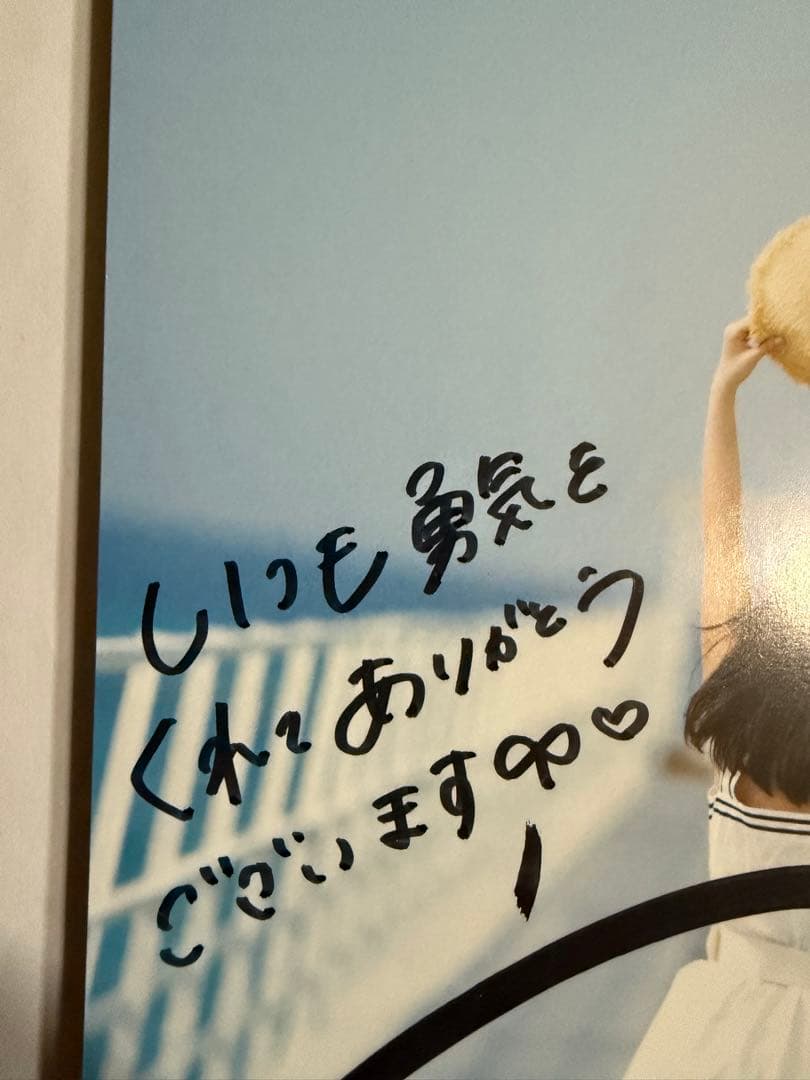 いつも勇気を
くれてありがとう
ございます♡